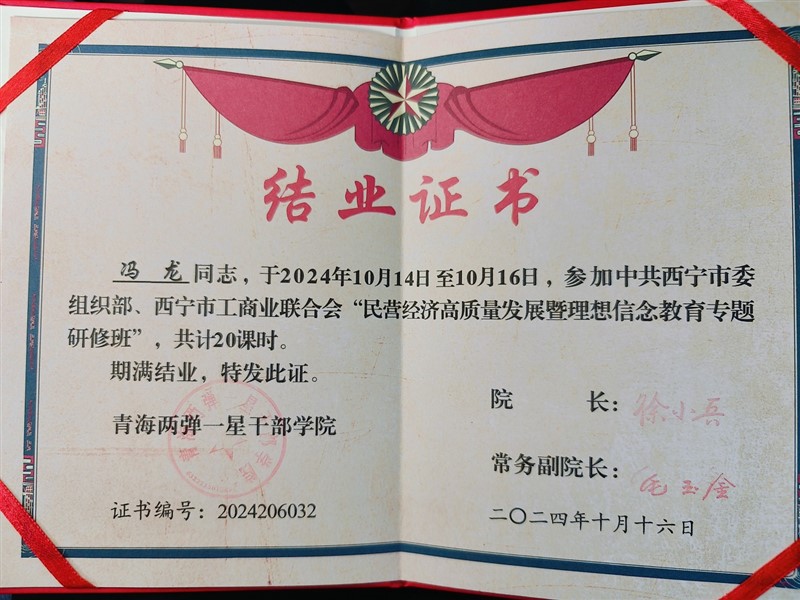 结业证书
冯龙同志，于2024年10月14日至10月16日，参加中共西宁市委
组织部、西宁市工商业联合会“民营经济高质量发展暨理想信念教育专题
研修班”，共计20课时。
期满结业，特发此证。
院长：徐小兵
青海两弹一星干部学院
常务副院长：毛玉金
证书编号：2024206032
二〇二四年十月十六日